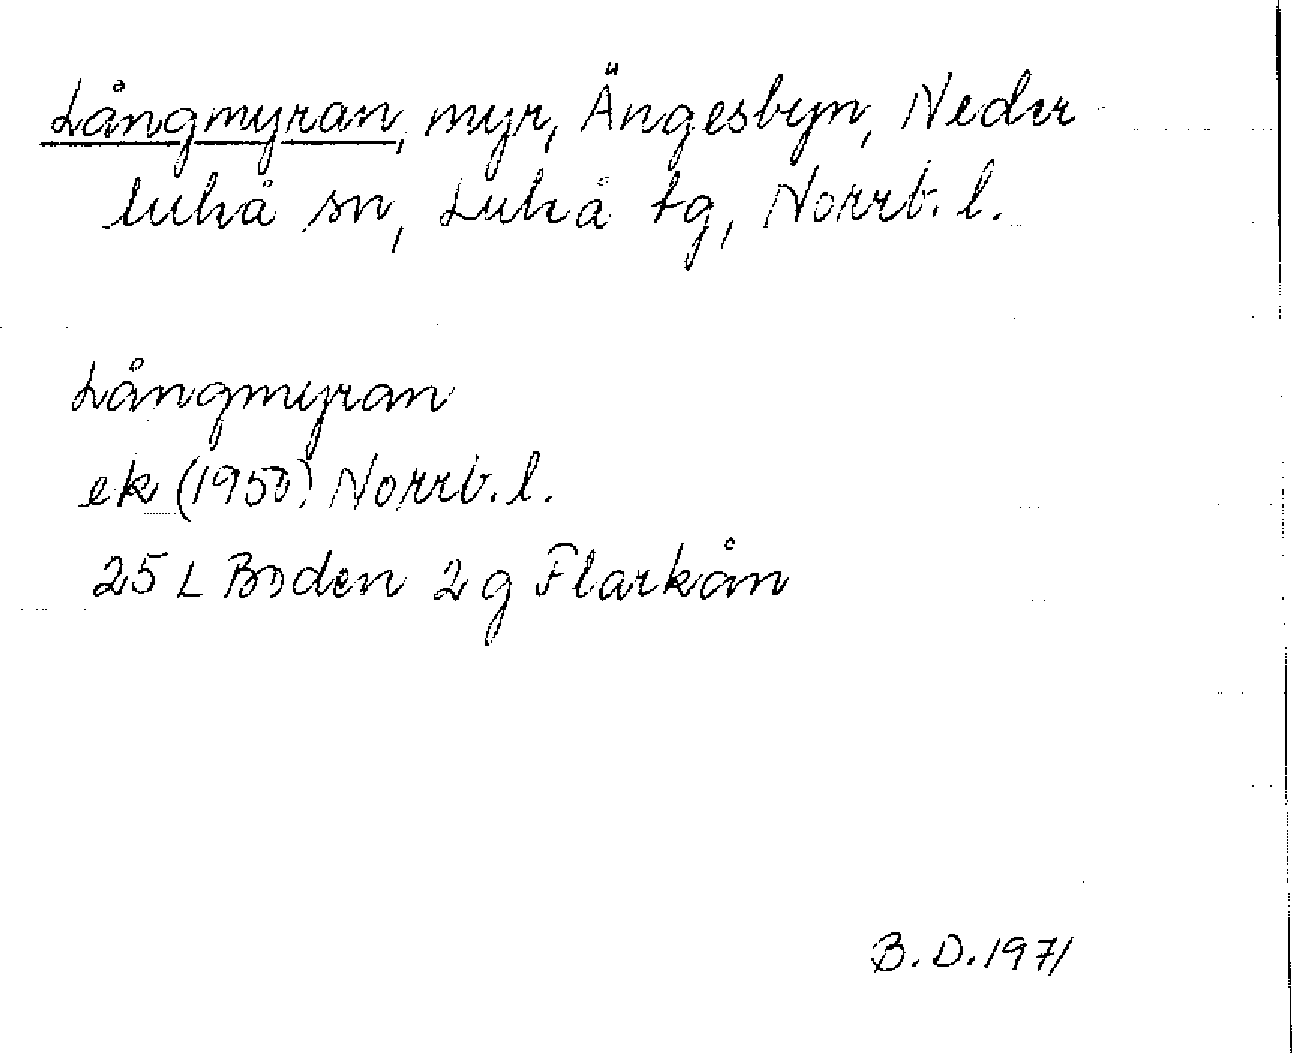 Långmyran, myr, Ängesbyn, Neder
luleå sn, Luleå tg, Norrb. l.
Långmyran
ek (1950) Norrb. l.
25 L Boden 2 g Flarkån
B. D. 1971